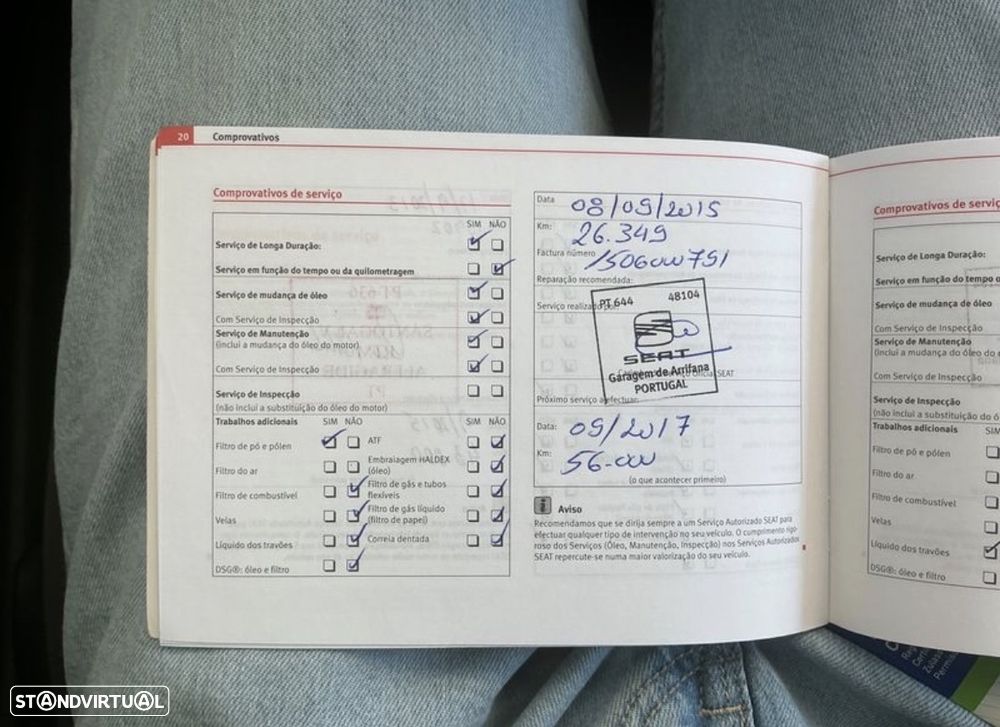 20 Comprovativos
Comprovativos de serviço
SIM NÃO
Serviço de Longa Duração:
Serviço em função do tempo ou da quilometragem
Serviço de mudança de óleo
Com Serviço de Inspecção
Serviço de Manutenção
(inclui a mudança do óleo do motor)
Com Serviço de Inspecção
Serviço de Inspecção
(não inclui a substituição do óleo do motor)
Trabalhos adicionais SIM NÃO SIM NÃO
Filtro de pó e pólen
ATF
Filtro do ar
Embraiagem HALDEX
(óleo)
Filtro de combustível
Filtro de gás e tubos
flexíveis
Velas
Filtro de gás líquido
(filtro de papel)
Líquido dos travões
Correia dentada
DSG®: óleo e filtro
Data 08/09/2015
Km: 26.349
Factura número
Reparação recomendada:
Serviço realizado por:
PT 644 48104
SEAT
Garagem de Arrifana
PORTUGAL
Próximo serviço a efectuar:
Data: 09/2017
Km: 56.000
(o que acontecer primeiro)
Aviso
Recomendamos que se dirija sempre a um Serviço Autorizado SEAT para
efectuar qualquer tipo de intervenção no seu veículo. O cumprimento rigo-
roso dos Serviços (Óleo, Manutenção, Inspecção) nos Serviços Autorizados
SEAT repercute-se numa maior valorização do seu veículo.
Comprovativos de serviç
Serviço de Longa Duração:
Serviço em função do tempo o
Serviço de mudança de óleo
Com Serviço de Inspecção
Serviço de Manutenção
(inclui a mudança do óleo do
Com Serviço de Inspecção
Serviço de Inspecção
(não inclui a substituição do ó
Trabalhos adicionais SIM
Filtro de pó e pólen
Filtro do ar
Filtro de combustível
Velas
Líquido dos travões
DSG®: óleo e filtro
STANDVIRTUAL